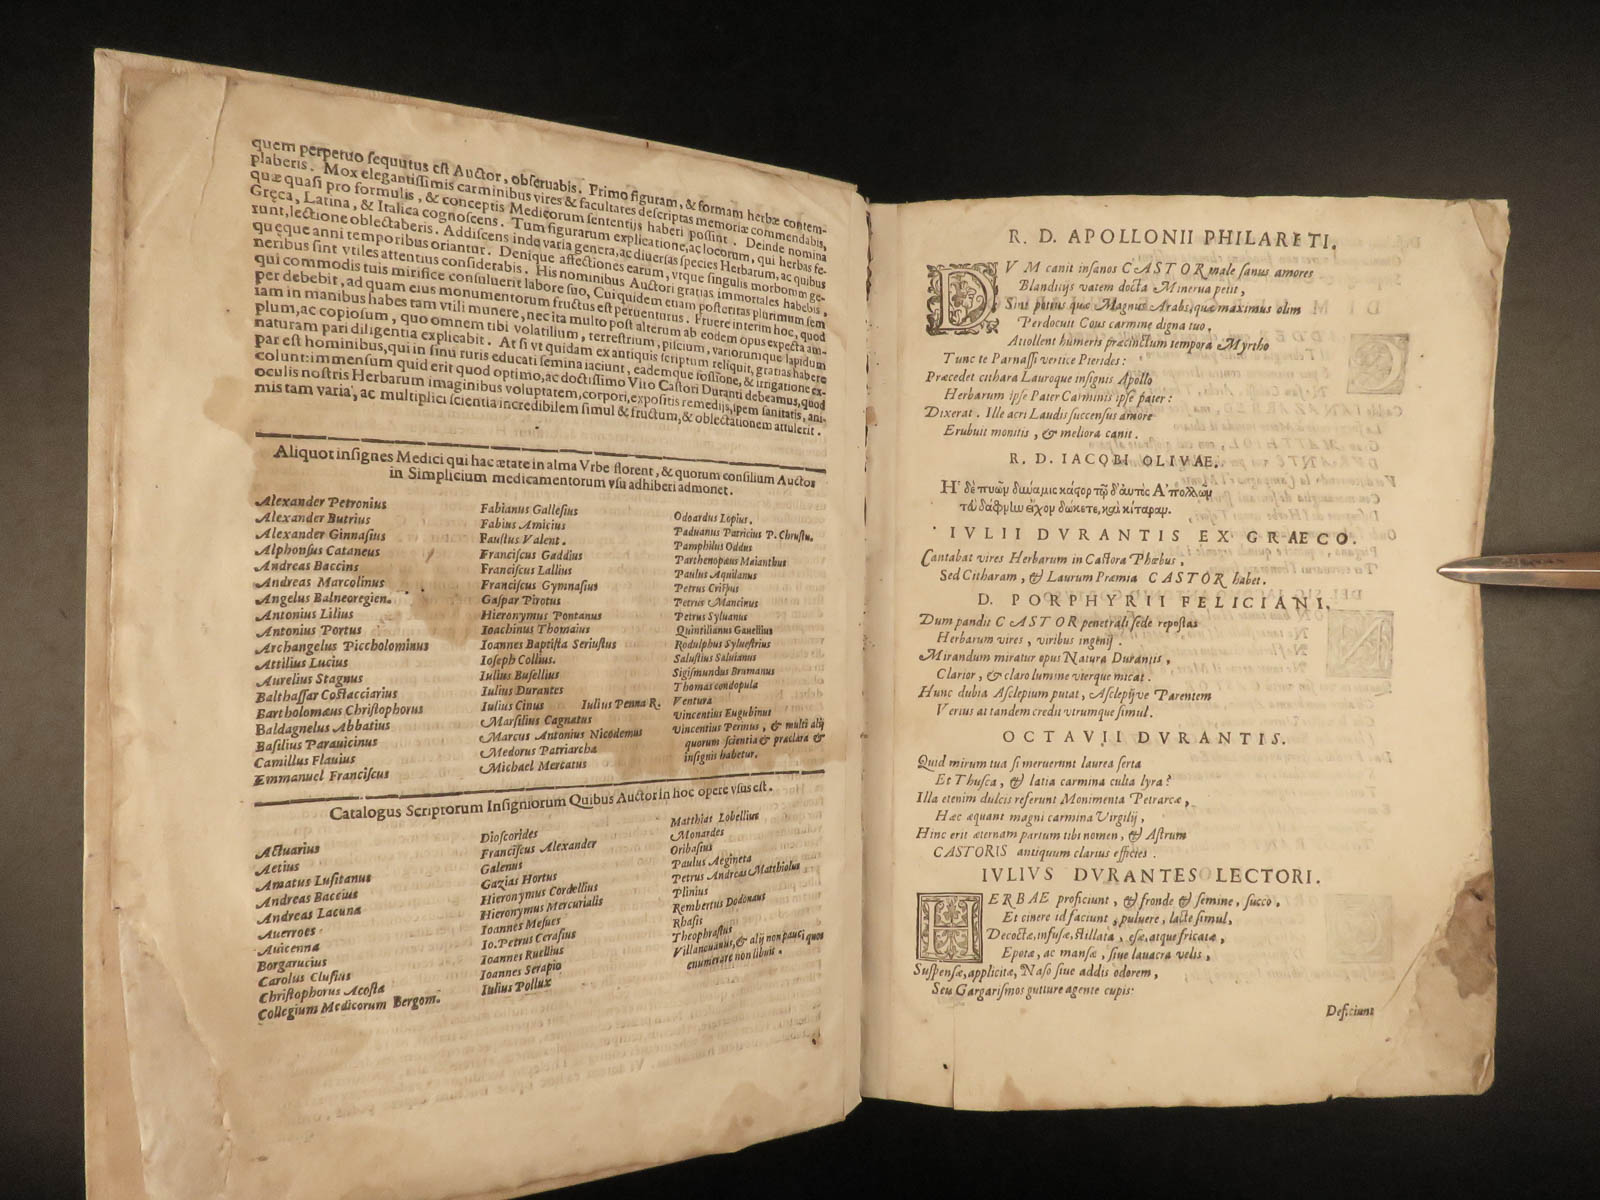 quem perpetuo sequutus est Auctor, obseruabis. Primo figuram, & formam herbæ contem-
plaberis. Mox elegantissimis carminibus vires & facultates descriptas memoriæ commendabis,
quæ quasi pro formulis, & conceptis Medicorum sententijs haberi possint. Deinde nomina
Gręca, Latina, & Italica cognosces. Tum figurarum explicatione, ac locorum, qui herbas fe-
runt, lectione oblectaberis. Addiscens inde varia genera, ac diuersas species Herbarum, ac quibus
quęque anni temporibus oriantur. Denique affectiones earum, vtque singulis morborum ge-
neribus sint vtiles attentius considerabis. His nominibus Auctori gratias immortales habebis,
qui commodis tuis mirifice consuluerit labore suo, Cui quidem etiam posteritas plurimum sem
per debebit, ad quam eius monumentorum fructus est peruenturus. Fruere interim hoc, quod
iam in manibus habes tam vtili munere, nec ita multo post alterum ab eodem opus expecta am-
plum, ac copiosum, quo omnem tibi volatilium, terrestrium, piscium, variorumque lapidum
naturam pari diligentia explicabit. At si vt quidam ex antiquis scriptum reliquit, gratias habere
par est hominibus, qui in sinu ruris educati semina iaciunt, eademque fossione, & irrigatione ex-
colunt: immensum quid erit quod optimo, ac doctissimo Viro Castori Duranti debeamus, quod
oculis nostris Herbarum imaginibus voluptatem, corpori, expositis remedijs, spem sanitatis, ani-
mis tam varia, ac multiplici scientia incredibilem simul & fructum, & oblectationem attulerit.
Aliquot insignes Medici qui hac ætate in alma Vrbe florent, & quorum consilium Auctor
in Simplicium medicamentorum vsu adhiberi admonet.
Alexander Petronius
Alexander Butrius
Alexander Ginnasius
Alphonsus Cataneus
Andreas Baccins
Andreas Marcolinus
Angelus Balneoregien.
Antonius Lilius
Antonius Portus
Archangelus Piccholominus
Attilius Lucius
Aurelius Stagnus
Balthassar Costacciarius
Bartholomæus Christophorus
Baldagnelus Abbatius
Basilius Parauicinus
Camillus Flauius
Emmanuel Franciscus
Fabianus Gallesius
Fabius Amicius
Faustus Valent.
Franciscus Gaddius
Franciscus Lallius
Franciscus Gymnasius
Gaspar Pirotus
Hieronymus Pontanus
Ioachinus Thomaius
Ioannes Baptista Seriustus
Ioseph Collius.
Iulius Busellius
Iulius Durantes
Iulius Cinus Iulius Penna R.
Marsilius Cagnatus
Marcus Antonius Nicodemus
Medorus Patriarcha
Michael Mercatus
Odoardus Lopius.
Paduanus Patricius P. Chrustu.
Pamphilus Oddus
Parthenopæus Maianthus
Paulus Aquilanus
Petrus Crispus
Petrus Mancinus
Petrus Syluanus
Quintilianus Gauellius
Rodulphus Syluestrius
Salustius Saluianus
Sigismundus Brumanus
Thomas condopula
Ventura
Vincentius Eugubinus
Vincentius Perinus, & multi alij
quorum scientia & præclara &
insignis habetur.
Catalogus Scriptorum Insigniorum Quibus Auctor in hoc opere vsus est.
Actuarius
Aetius
Amatus Lusitanus
Andreas Baccius
Andreas Lacuna
Auerroes
Auicenna
Borgarucius
Carolus Clusius
Christophorus Acosta
Collegium Medicorum Bergom.
Dioscorides
Franciscus Alexander
Galenus
Gazias Hortus
Hieronymus Cordellius
Hieronymus Mercurialis
Ioannes Mesues
Io. Petrus Cerasius
Ioannes Ruellius
Ioannes Serapio
Iulius Pollux
Matthias Lobellius
Monardes
Oribasius
Paulus Aegineta
Petrus Andreas Matthiolus
Plinius
Rembertus Dodonæus
Rhasis
Theophrastus
Villanouanus, & alij non pauci quos
enumerare non libuit.
R. D. APOLLONII PHILARETI.
DVM canit insanos CASTOR male sanus amores
Blanditijs vatem docta Minerua petit,
Sint potius quæ Magnus Arabs, quæ maximus olim
Perdocuit Cous carmine digna tuo,
Attollent humeris præcinctum tempora Myrtho
Tunc te Parnassi vertice Pierides:
Præcedet cithara Lauroque insignis Apollo
Herbarum ipse Pater Carminis ipse pater:
Dixerat. Ille acri Laudis succensus amore
Erubuit monitis, & meliora canit.
R. D. IACOBI OLIVAE.
Ἡ δὲ πυῶν δυνάμις κάςορ τῷ δ' αὐτὸς Ἀπολλῶν
τὰν δάφνιω εἶχον δώκετε, καὶ κίταραν.
IVLII DVRANTIS EX GRAECO.
Cantabat vires Herbarum in Castora Phœbus,
Sed Citharam, & Laurum Præmia CASTOR habet.
D. PORPHYRII FELICIANI.
Dum pandit CASTOR penetrali sede repostas
Herbarum vires, viribus ingenij.
Mirandum miratur opus Natura Durantis,
Clarior, & claro lumine vterque micat.
Hunc dubia Asclepium putat, Asclepijve Parentem
Verius at tandem credit vtrumque simul.
OCTAVII DVRANTIS.
Quid mirum tua si meruerunt laurea serta
Et Thusca, & latia carmina culta lyra?
Illa etenim dulcis referunt Monimenta Petrarcæ,
Hæc æquant magni carmina Virgilij,
Hinc erit æternam partum tibi nomen, & Astrum
CASTORIS antiquum clarius efficies.
IVLIVS DVRANTES LECTORI.
HERBAE proficiunt, & fronde & semine, succo,
Et cinere id faciunt, puluere, lacte simul,
Decoctæ, infusæ, stillata, esæ, atque fricatæ,
Epotæ, ac mansæ, siue lauacra velis,
Suspensæ, applicitæ, Naso siue addis odorem,
Seu Gargarismos gutture agente cupis:
Deficiunt